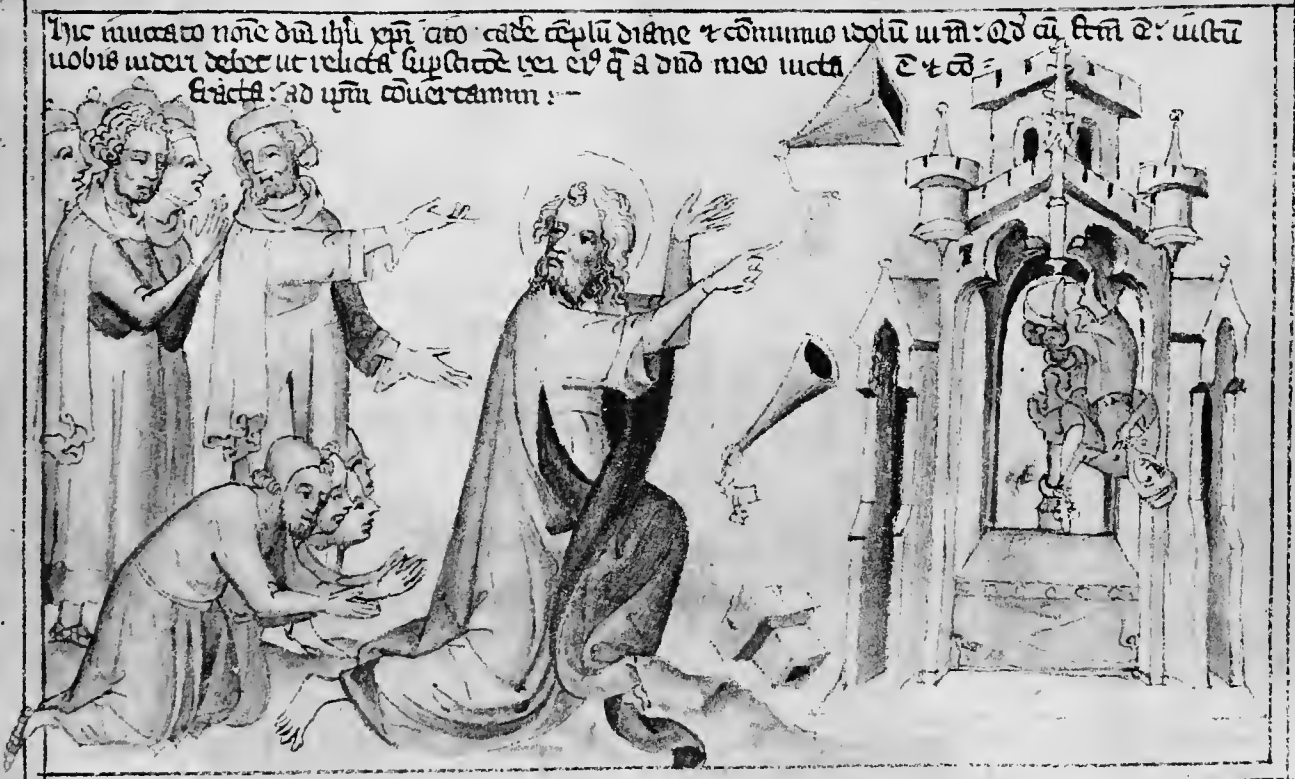 Hic inuocato noīe dn̄i ihū xp̄i cito cadē tēplū diane ⁊ cōminuo ydolū
Qd̓ cū fc̄m ē: iustū
uobis uideri debet ut relicta suꝑsticōe a dn̄o meo uicta ē ⁊ cō
fracta: ad ip̄m cōuertamini: